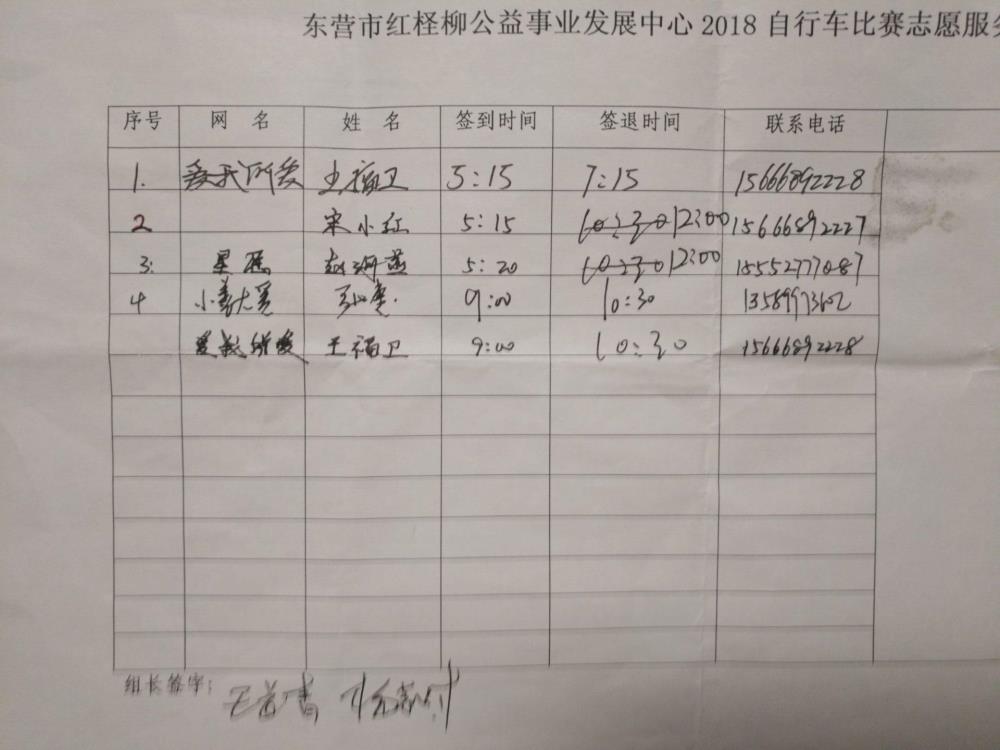 东营市红柽柳公益事业发展中心 2018 自行车比赛志愿服务
序号 网 名 姓 名 签到时间 签退时间 联系电话
1. 爱我所爱 王福卫 5:15 7:15 15666892228
2 宋小红 5:15 10:30 12:00 15666892227
3. 星 赵 燕 5:20 10:30 12:00 15552777087
4 小 大爱 9:00 10:30 13589973602
爱我所爱 王福卫 9:00 10:30 15666892228
组长签字: